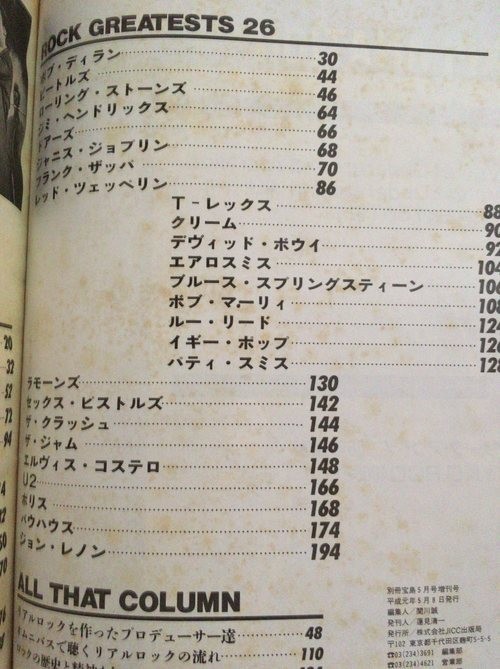 ROCK GREATESTS 26
ボブ・ディラン 30
ビートルズ 44
ローリング・ストーンズ 46
ジミ・ヘンドリックス 64
ドアーズ 66
ジャニス・ジョプリン 68
フランク・ザッパ 70
レッド・ツェッペリン 86
T-レックス 88
クリーム 90
デヴィッド・ボウイ 92
エアロスミス 104
ブルース・スプリングスティーン 106
ボブ・マーリィ 108
ルー・リード 124
イギー・ポップ 126
パティ・スミス 128
ラモーンズ 130
セックス・ピストルズ 142
ザ・クラッシュ 144
ザ・ジャム 146
エルヴィス・コステロ 148
U2 166
ホリス 168
バウハウス 174
ジョン・レノン 194
20
32
52
72
94
ALL THAT COLUMN
リアルロックを作ったプロデューサー達 48
オムニバスで聴くリアルロックの流れ 110
別冊宝島5月号増刊号
平成元年5月8日発行
編集人/関川誠
発行人/蓮見清一
発行所/株式会社JICC出版局
〒102 東京都千代田区麹町5-5-5
☎03(234)3691 編集部
☎03(234)4621 営業部